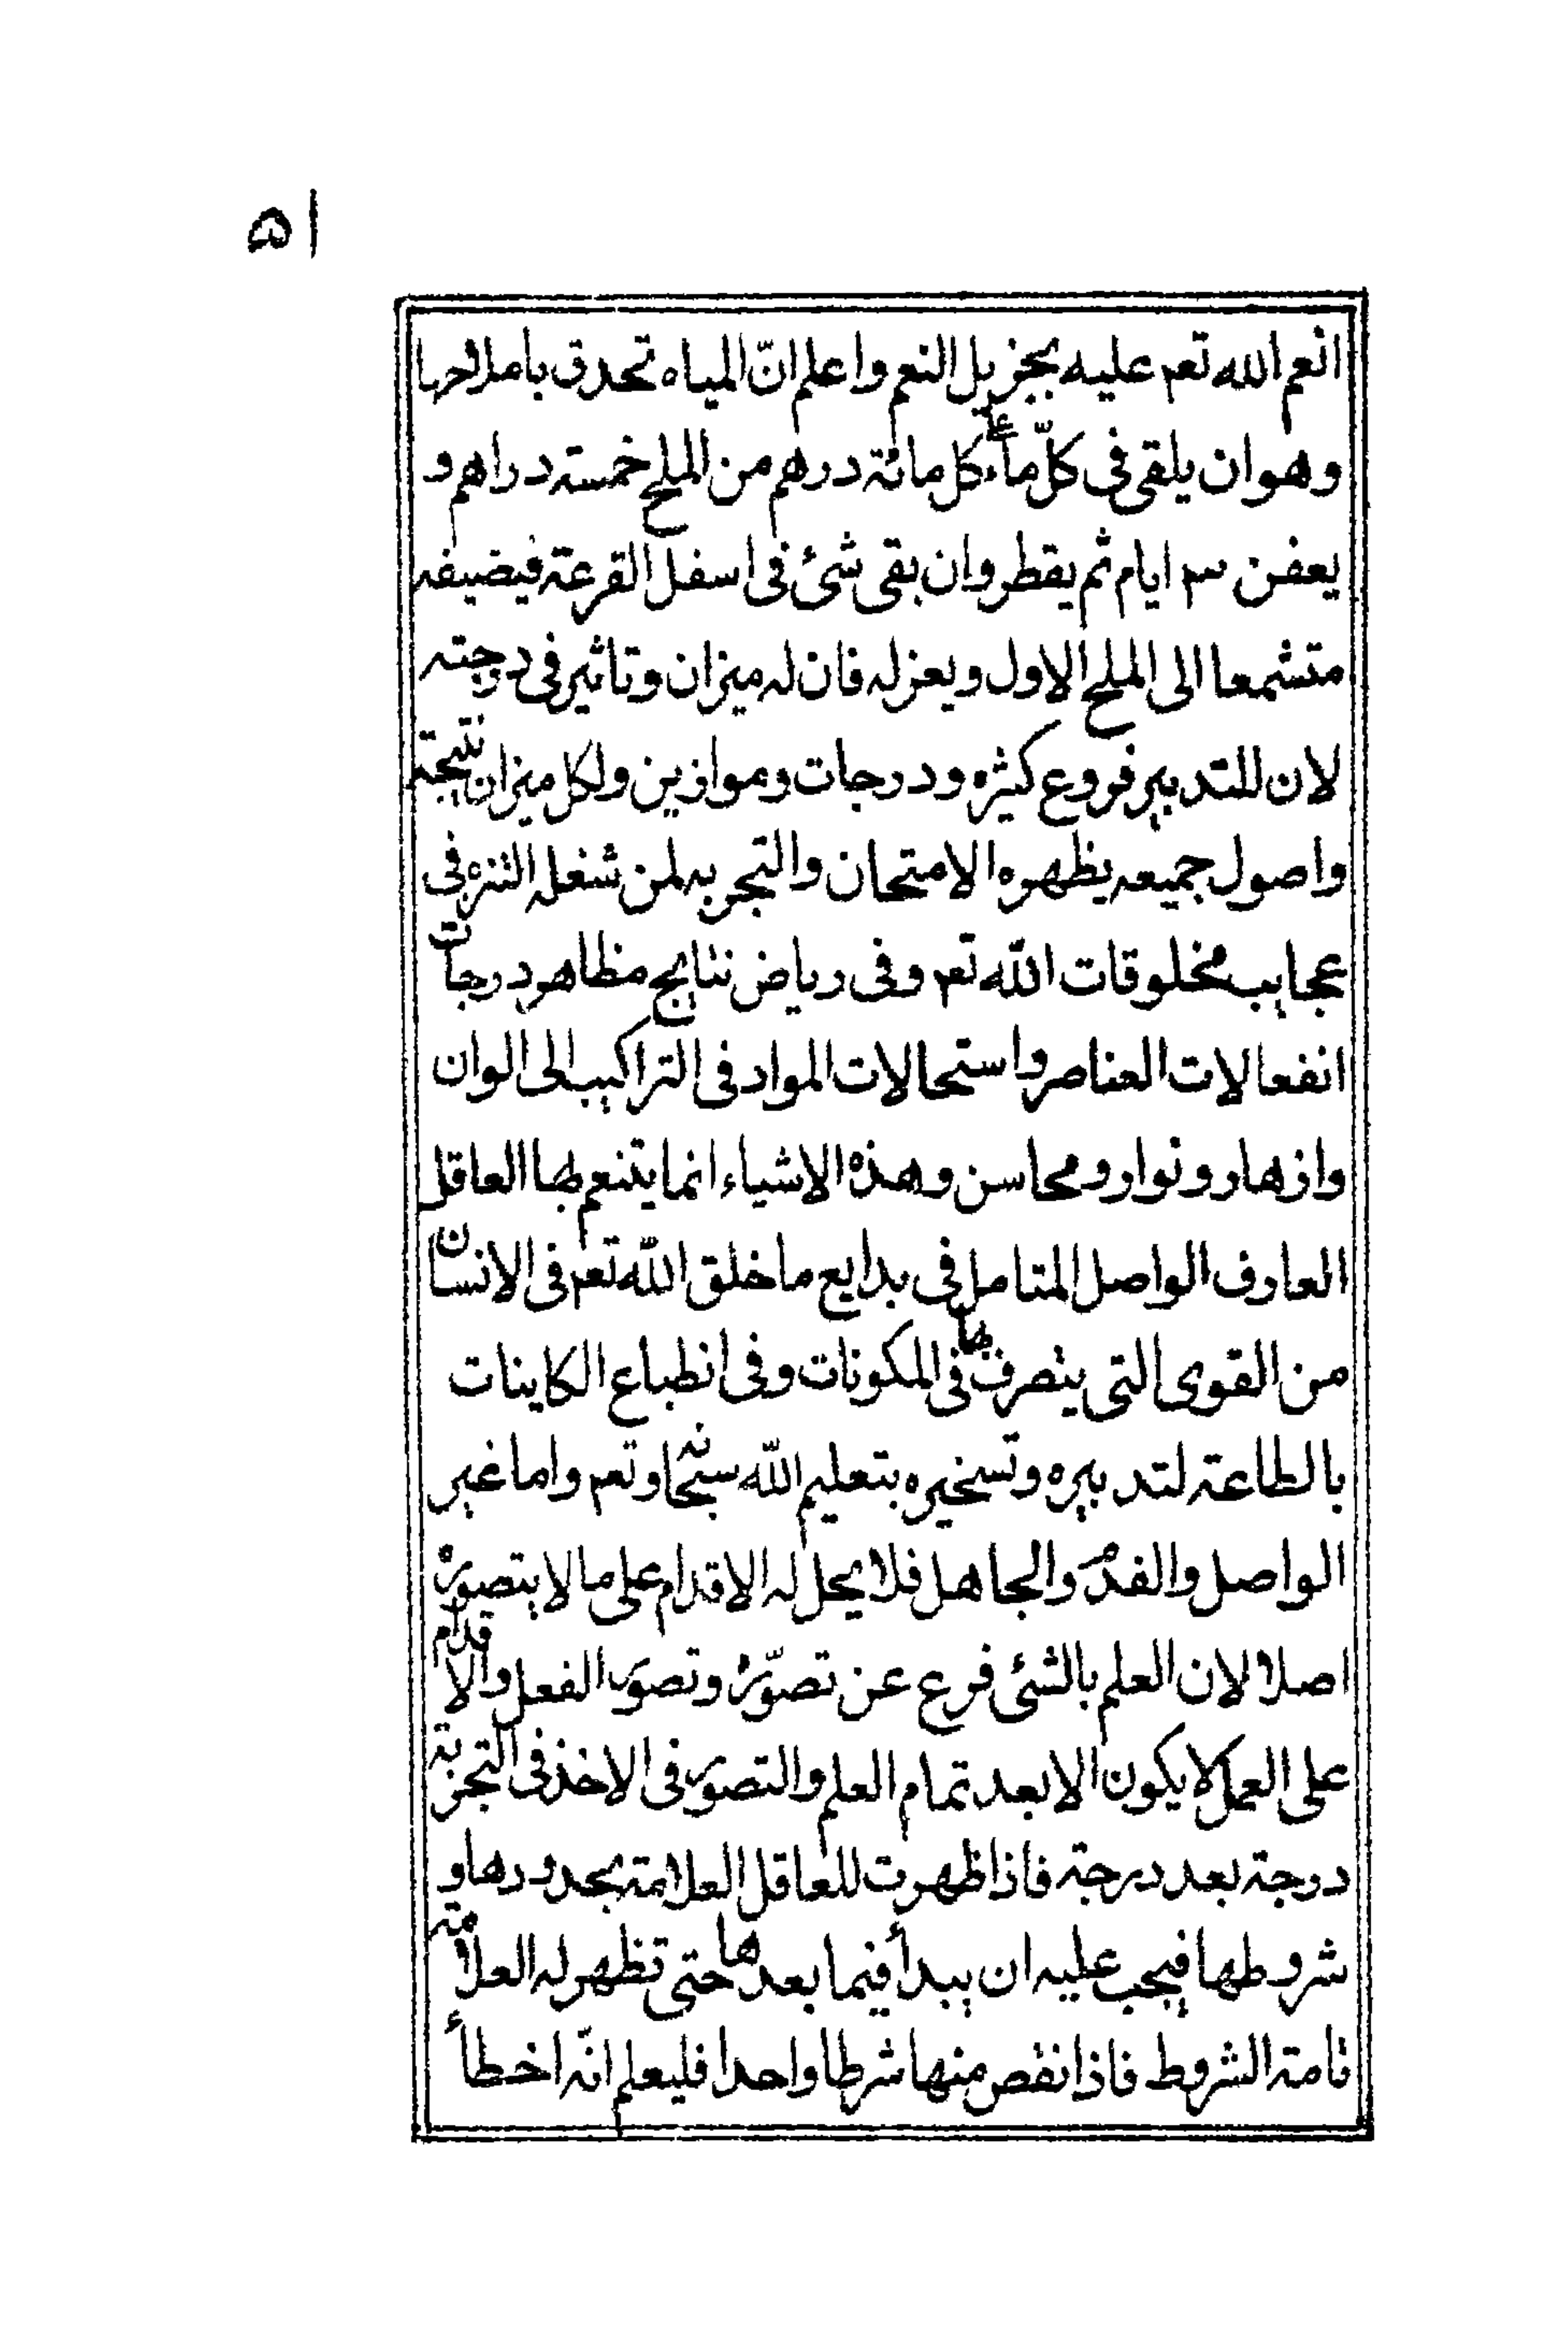 ٥١
انعم الله تعم عليه بجزيل النعم واعلم انّ المياه تحدق باملاحها
وهوان يلقى فى كلّ ماء على كل مائة درهم من الملح خمسة دراهم و
يعفن ٣ ايام ثم يقطر وان بقى شئ فى اسفل القرعة فيضيفه
متشمعا الى الملح الاول ويعزله فان له ميزان وتاثير فى درجته
لان للتدبير فروع كثيره ودرجات وموازين ولكل ميزان نتيجة
واصول جميعه يظهره الامتحان والتجربه لمن شغله التنزه فى
عجايب مخلوقات الله تعم وفى رياض نتايج مظاهر درجات
انفعالات العناصر واستحالات المواد فى التراكيب الى الوان
وازهار ونوار ومحاسن وهذه الاشياء انما يتنعم بها العاقل
العارف الواصل المتامل فى بدايع ما خلق الله تعم فى الانسان
من القوى التى يتصرف بها فى المكونات وفى انطباع الكاينات
بالطاعة لتدبيره وتسخيره بتعليم الله سبحانه وتعم واما غير
الواصل والفدم والجاهل فلا يحل له الاقدام على ما لا يتصوره
اصلا لان العلم بالشئى فرع عن تصوّره وتصور الفعل والاقدام
على العمل لا يكون الا بعد تمام العلم والتصور فى الاخذ فى التجربة
درجة بعد درجة فاذا ظهرت للعاقل العلامة بحدودها و
شروطها فيجب عليه ان يبدأ فيما بعدها حتى تظهر له العلامة
تامة الشروط فاذا نقص منها شرطا واحدا فليعلم انّه اخطأ